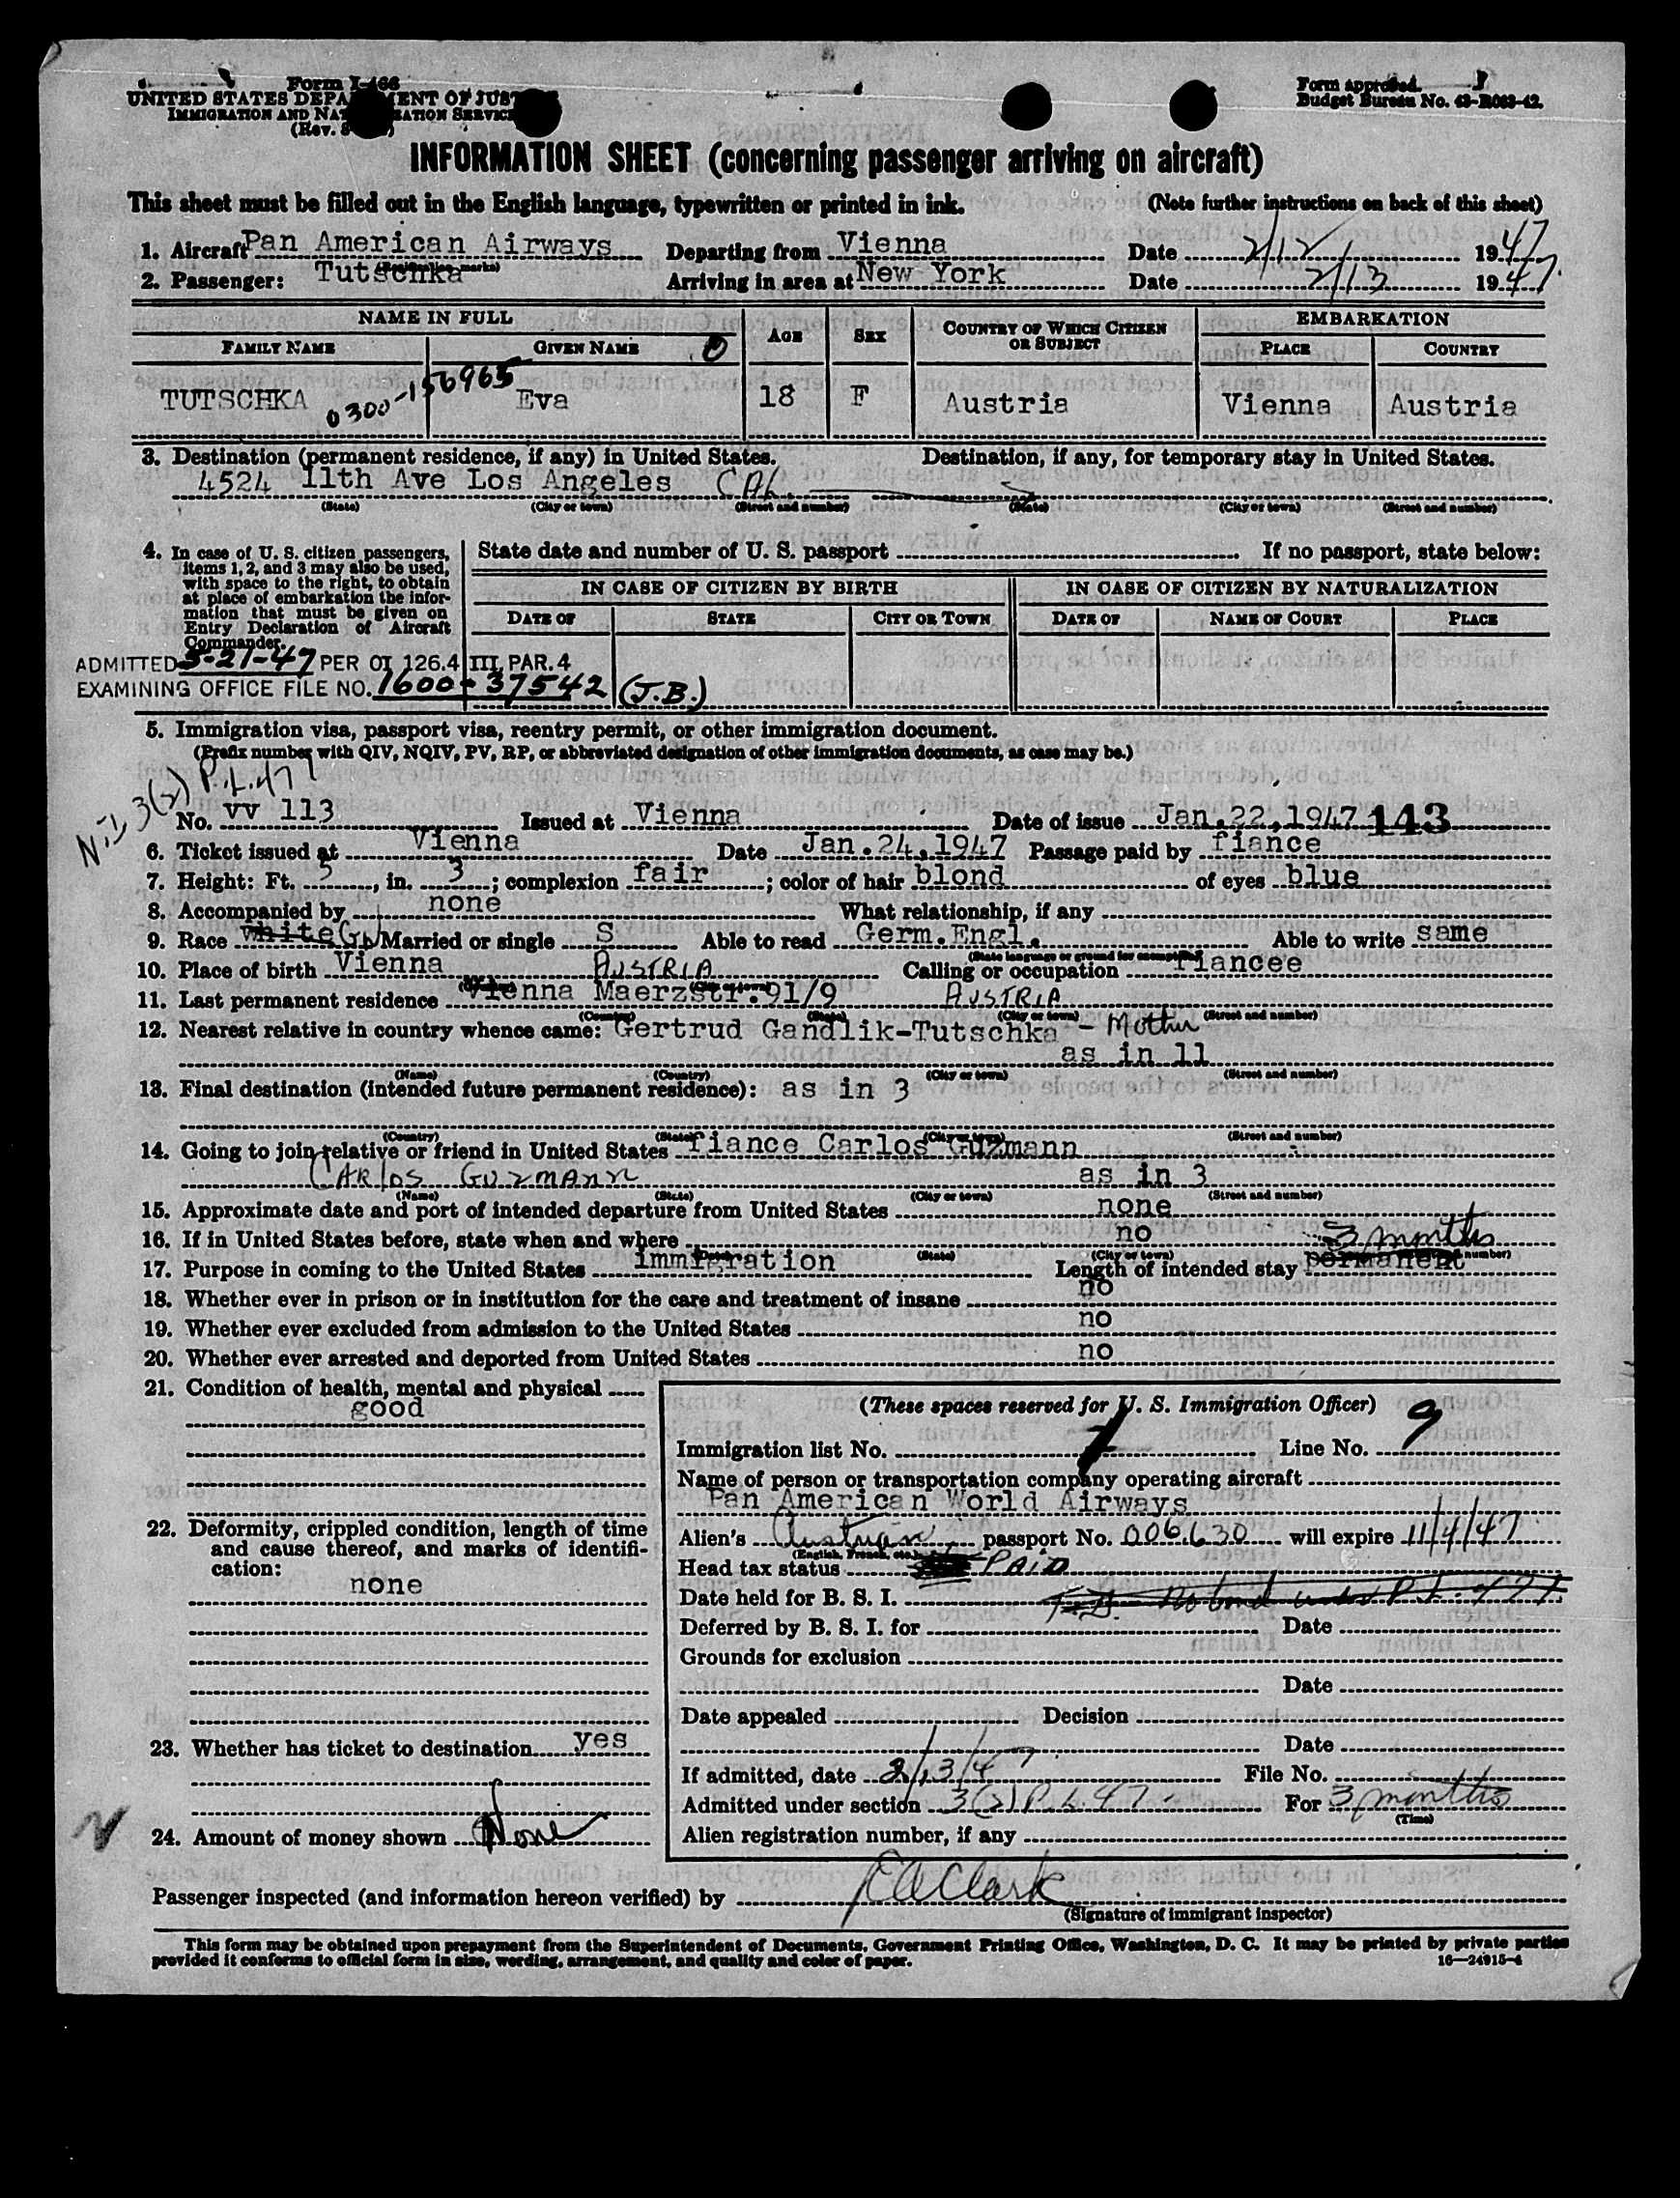 Form I-466
UNITED STATES DEPARTMENT OF JUSTICE
IMMIGRATION AND NATURALIZATION SERVICE
(Rev.
Form approved.
Budget Bureau No. 43-R063-42.
INFORMATION SHEET (concerning passenger arriving on aircraft)
This sheet must be filled out in the English language, typewritten or printed in ink. (Note further instructions on back of this sheet)
1. Aircraft Pan American Airways Departing from Vienna Date 2/12 1947
2. Passenger: Tutschka Arriving in area at New York Date 2/13 1947.
NAME IN FULL AGE SEX COUNTRY OF WHICH CITIZEN OR SUBJECT EMBARKATION
FAMILY NAME GIVEN NAME PLACE COUNTRY
0300-156965
TUTSCHKA Eva 18 F Austria Vienna Austria
3. Destination (permanent residence, if any) in United States. Destination, if any, for temporary stay in United States.
4524 11th Ave Los Angeles CAL.
(State) (City or town) (Street and number) (State) (City or town) (Street and number)
4. In case of U. S. citizen passengers, items 1, 2, and 3 may also be used, with space to the right, to obtain at place of embarkation the information that must be given on Entry Declaration of Aircraft Commander.
State date and number of U. S. passport If no passport, state below:
IN CASE OF CITIZEN BY BIRTH IN CASE OF CITIZEN BY NATURALIZATION
DATE OF STATE CITY OR TOWN DATE OF NAME OF COURT PLACE
ADMITTED 5-21-47 PER OI 126.4 III PAR. 4
EXAMINING OFFICE FILE NO. 1600-37542 (J.B.)
5. Immigration visa, passport visa, reentry permit, or other immigration document.
(Prefix number with QIV, NQIV, PV, RP, or abbreviated designation of other immigration documents, as case may be.)
3(2) P.L.471
No. VV 113 Issued at Vienna Date of issue Jan.22,1947 143
6. Ticket issued at Vienna Date Jan.24,1947 Passage paid by fiance
7. Height: Ft. 5, in. 3; complexion fair; color of hair blond of eyes blue
8. Accompanied by none What relationship, if any
9. Race white Married or single S Able to read Germ.Engl. Able to write same
(State language or ground for exemption)
10. Place of birth Vienna AUSTRIA Calling or occupation fiancee
11. Last permanent residence Vienna Maerzstr.91/9 AUSTRIA
(Country) (State) (City or town) (Street and number)
12. Nearest relative in country whence came: Gertrud Gandlik-Tutschka - Mother
as in 11
(Name) (Country) (City or town) (Street and number)
13. Final destination (intended future permanent residence): as in 3
(Country) (State) (City or town) (Street and number)
14. Going to join relative or friend in United States fiance Carlos Guzmann
CARLOS GUZMANN as in 3
(Name) (State) (City or town) (Street and number)
15. Approximate date and port of intended departure from United States none
16. If in United States before, state when and where no 3 months
(State) (City or town)
17. Purpose in coming to the United States immigration Length of intended stay permanent
18. Whether ever in prison or in institution for the care and treatment of insane no
19. Whether ever excluded from admission to the United States no
20. Whether ever arrested and deported from United States no
21. Condition of health, mental and physical
good
22. Deformity, crippled condition, length of time and cause thereof, and marks of identification:
none
23. Whether has ticket to destination yes
24. Amount of money shown None
(These spaces reserved for U. S. Immigration Officer)
Immigration list No. 1 Line No. 9
Name of person or transportation company operating aircraft
Pan American World Airways
Alien's Austrian passport No. 006630 will expire 11/4/47
(English, French, etc.)
Head tax status PAID
Date held for B. S. I.
Deferred by B. S. I. for Date
Grounds for exclusion
Date
Date appealed Decision
Date
If admitted, date 2/13/47 File No.
Admitted under section 3(2) P.L. 47 For 3 months
(Time)
Alien registration number, if any
Passenger inspected (and information hereon verified) by
(Signature of immigrant inspector)
This form may be obtained upon prepayment from the Superintendent of Documents, Government Printing Office, Washington, D. C. It may be printed by private parties
provided it conforms to official form in size, wording, arrangement, and quality and color of paper. 16—24915-4